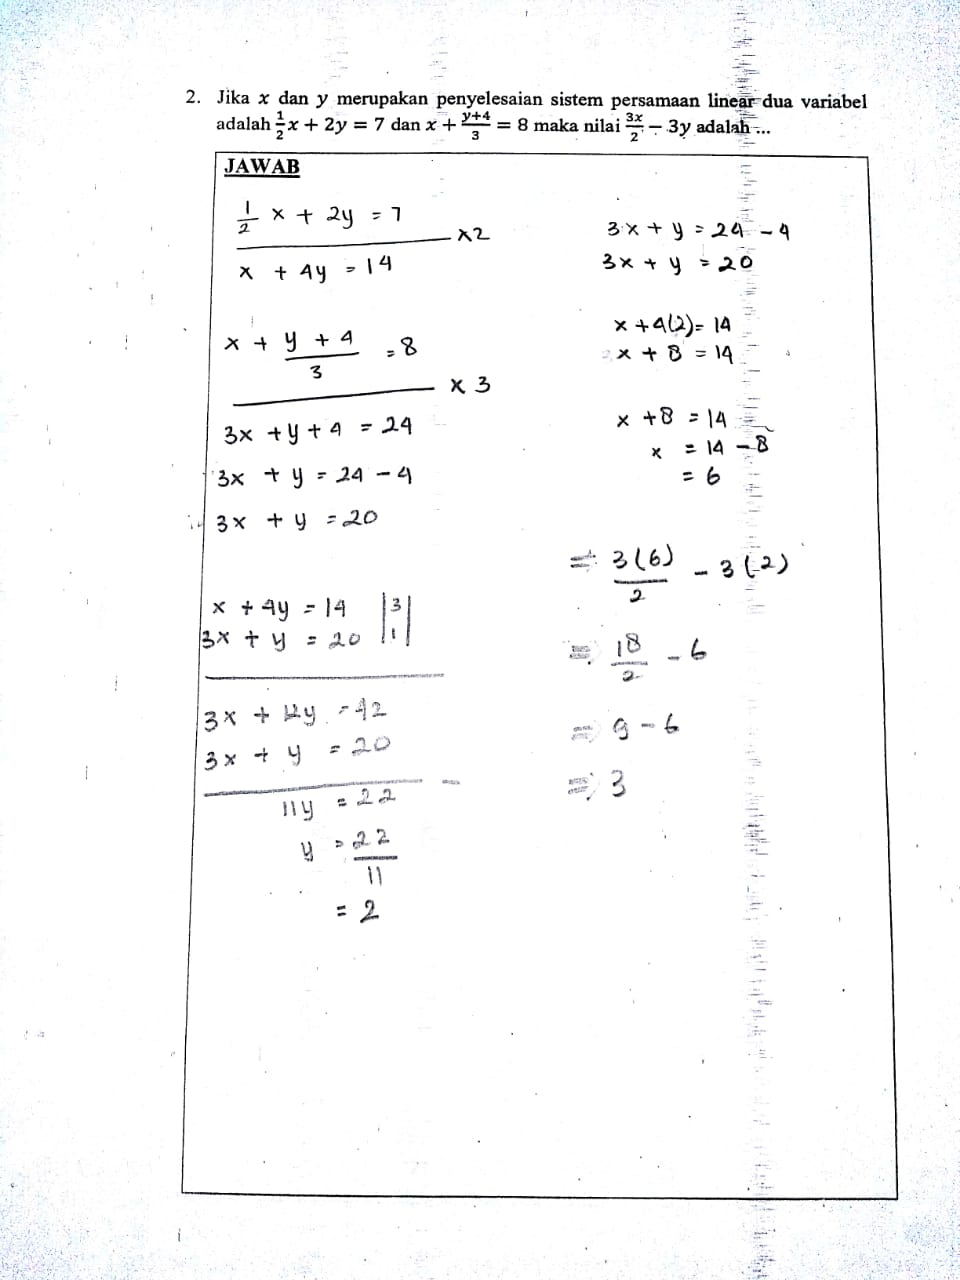 2. Jika x dan y merupakan penyelesaian sistem persamaan linear dua variabel
adalah 1/2 x + 2y = 7 dan x + (y+4)/3 = 8 maka nilai 3x/2 − 3y adalah ...
JAWAB
1/2 x + 2y = 7
x2
x + 4y = 14
x + (y + 4)/3 = 8
x 3
3x + y + 4 = 24
3x + y = 24 - 4
3x + y = 20
x + 4y = 14 | 3 |
3x + y = 20 | 1 |
3x + 12y = 42
3x + y = 20
-
11y = 22
y = 22/11
= 2
3x + y = 24 - 4
3x + y = 20
x + 4(2) = 14
x + 8 = 14
x + 8 = 14
x = 14 - 8
= 6
=> 3(6)/2 - 3(2)
=> 18/2 - 6
=> 9 - 6
=> 3